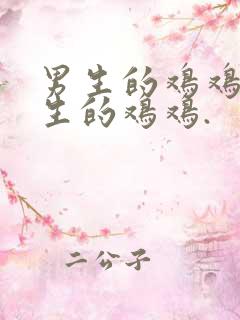 男生的鸡鸡
生的鸡鸡.
二公子